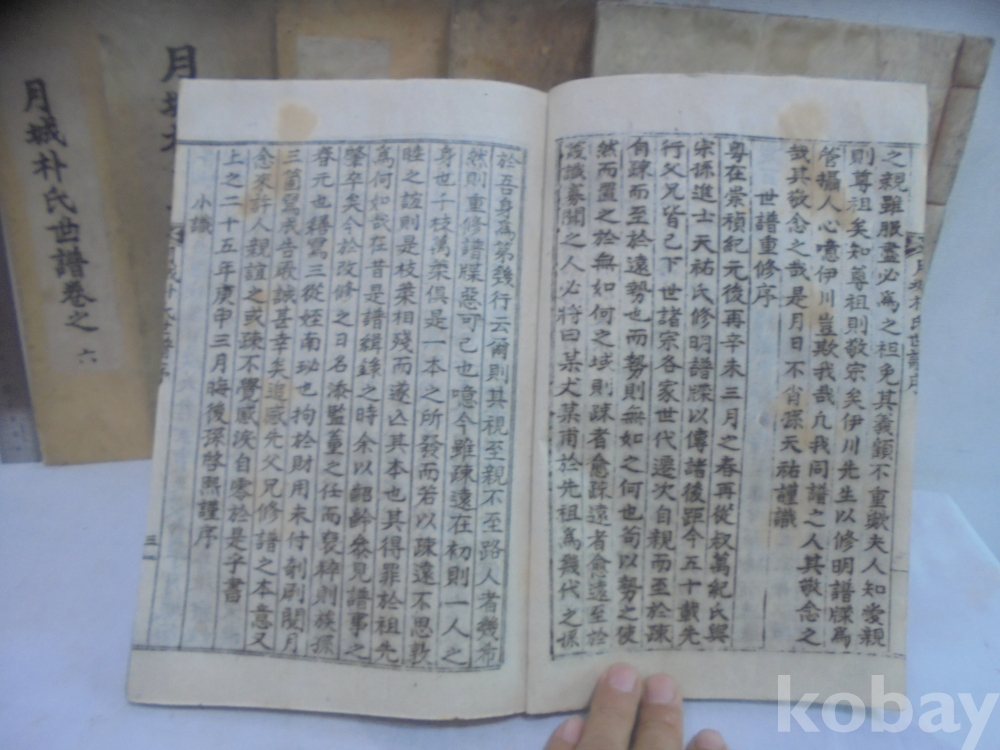 之親雖服盡必爲之袒免其義顧不重歟夫人知愛親
則尊祖矣知尊祖則敬宗矣伊川先生以修明譜牒爲
管攝人心噫伊川豈欺我哉凡我同譜之人其敬念之
哉其敬念之哉是月日不肖孫天祐謹識
世譜重修序
粤在崇禎紀元後再辛未三月之春再從叔萬紀氏與
宗孫進士天祐氏修明譜牒以傳諸後距今五十載先
行父兄皆已下世諸宗各家世代遷次自親而至於疎
自疎而至於遠勢也而勢則無如之何也苟以勢之使
然而置之於無如何之域則疎者愈疎遠者愈遠至於
蔑識寡聞之人必將曰某犬某甫於先祖爲幾代之孫
於吾身爲第幾行云爾則其視至親不至路人者幾希
然則重修譜牒惡可已也噫今雖疎遠在初則一人之
身也千枝萬葉俱是一本之所發而若以疎遠不思敦
睦之誼則是枝葉相殘而遂亡其本也其得罪於祖先
爲何如哉在昔是譜緝錄之時余以齠齡參見譜事之
肇卒矣今於改修之日名添監董之任而裒稡則族孫
春元也繕寫三從姪南
也拘於財用未付剞劂閱月
三
寫成告
甚幸矣追感先父兄修譜之本意又
念來許人親誼之或疎不覺感淚自零於是乎書
上之二十五年庚申三月晦後孫啓熙謹序
小識
三
月城朴氏世譜卷之六
月城
kobay